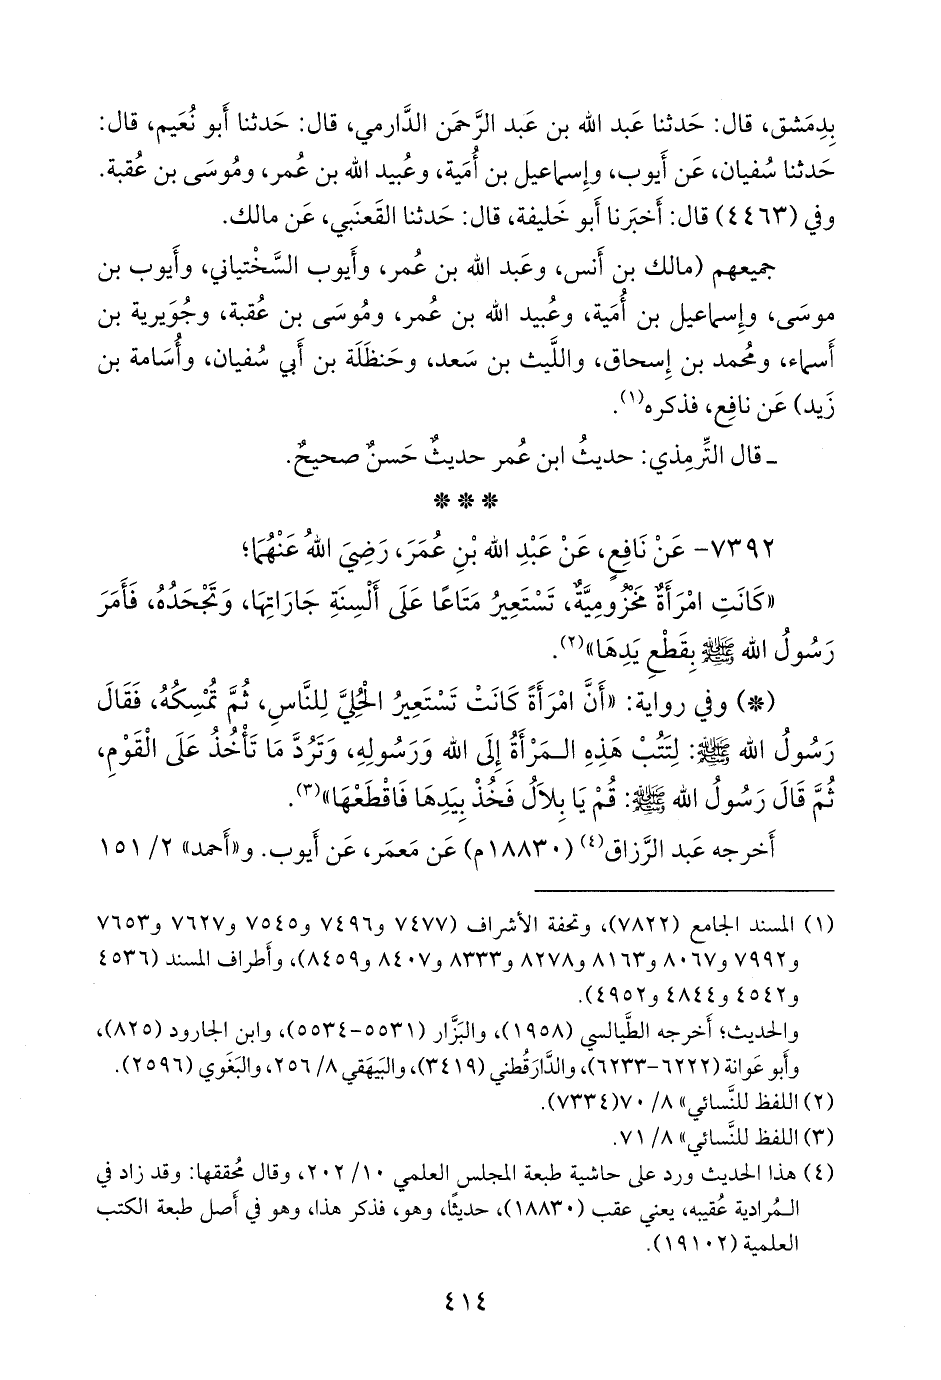 بِدِمَشق، قال: حَدثنا عَبد الله بن عَبد الرَّحمَن الدَّارمي، قال: حَدثنا أَبو نُعَيم، قال:
حَدثنا سُفيان، عَن أَيوب، وإِسماعيل بن أُمَية، وعُبيد الله بن عمر، ومُوسَى بن عُقبة.
وفي (٤٤٦٣) قال: أَخبَرنا أَبو خَليفة، قال: حَدثنا القَعنَبي، عَن مالك.
جميعهم (مالك بن أَنس، وعَبد الله بن عُمر، وأَيوب السَّخْتياني، وأَيوب بن
موسَى، وإِسماعيل بن أُمَية، وعُبيد الله بن عُمر، ومُوسَى بن عُقبة، وجُوَيرية بن
أَسماء، ومُحمد بن إِسحاق، والليث بن سَعد، وحَنظَلَة بن أَبي سُفيان، وأُسَامة بن
زَيد) عَن نافِع، فذكره(١).
ـ قال التِّرمِذي: حديثُ ابن عُمر حديثٌ حَسنٌ صحيحٌ.
* * *
٧٣٩٢- عَنْ نَافِعٍ، عَنْ عَبْدِ الله بْنِ عُمَرَ، رَضِيَ اللهُ عَنْهُمَا؛
«كَانَتِ امْرَأَةٌ مَخْزُومِيَّةٌ، تَسْتَعِيرُ مَتَاعًا عَلَى أَلْسِنَةِ جَارَاتِهَا، وَتَجْحَدُهُ، فَأَمَرَ
رَسُولُ الله ﷺ بِقَطْعِ يَدِهَا»(٢).
(*) وفي رواية: «أَنَّ امْرَأَةً كَانَتْ تَسْتَعِيرُ الْحُلِيَّ لِلنَّاسِ، ثُمَّ تُمْسِكُهُ، فَقَالَ
رَسُولُ الله ﷺ: لِتَتُبْ هَذِهِ الـمَرْأَةُ إِلَى الله وَرَسُولِهِ، وَتَرُدَّ مَا تَأْخُذُ عَلَى الْقَوْمِ،
ثُمَّ قَالَ رَسُولُ الله ﷺ: قُمْ يَا بِلَالُ فَخُذْ بِيَدِهَا فَاقْطَعْهَا»(٣).
أَخرجه عَبد الرَّزاق(٤) (١٨٨٣٠م) عَن مَعمَر، عَن أَيوب. و«أَحمد» ٢/ ١٥١
(١) المسند الجامع (٧٨٢٢)، وتحفة الأشراف (٧٤٧٧ و٧٤٩٦ و٧٥٤٥ و٧٦٢٧ و٧٦٥٣
و٧٩٩٢ و٨٠٦٧ و٨١٦٣ و٨٢٧٨ و٨٣٣٣ و٨٤٠٧ و٨٤٥٩)، وأطراف المسند (٤٥٣٦
و٤٥٤٢ و٤٨٤٤ و٤٩٥٢).
والحديث؛ أخرجه الطَّيالسي (١٩٥٨)، والبَزَّار (٥٥٣١-٥٥٣٤)، وابن الجارود (٨٢٥)،
وأَبو عَوانة (٦٢٢٢-٦٢٣٣)، والدَّارَقُطني (٣٤١٩)، والبَيهَقي ٨/ ٢٥٦، والبَغَوي (٢٥٩٦).
(٢) اللفظ للنَّسائي» ٨/ ٧٠(٧٣٣٤).
(٣) اللفظ للنَّسائي» ٨/ ٧١.
(٤) هذا الحديث ورد على حاشية طبعة المجلس العلمي ١٠/ ٢٠٢، وقال مُحققها: وقد زاد في
الـمُرادية عُقيبه، يعني عقب (١٨٨٣٠)، حديثًا، وهو، فذكر هذا، وهو في أصل طبعة الكتب
العلمية (١٩١٠٢).
٤١٤